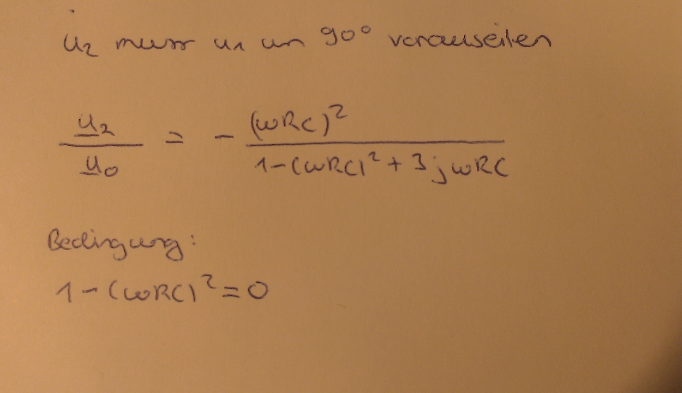 u₂ muss u₁ um 90° vorauseilen
u₂/u₀ = - (ωRC)² / (1-(ωRC)² + 3jωRC)
Bedingung:
1-(ωRC)² = 0